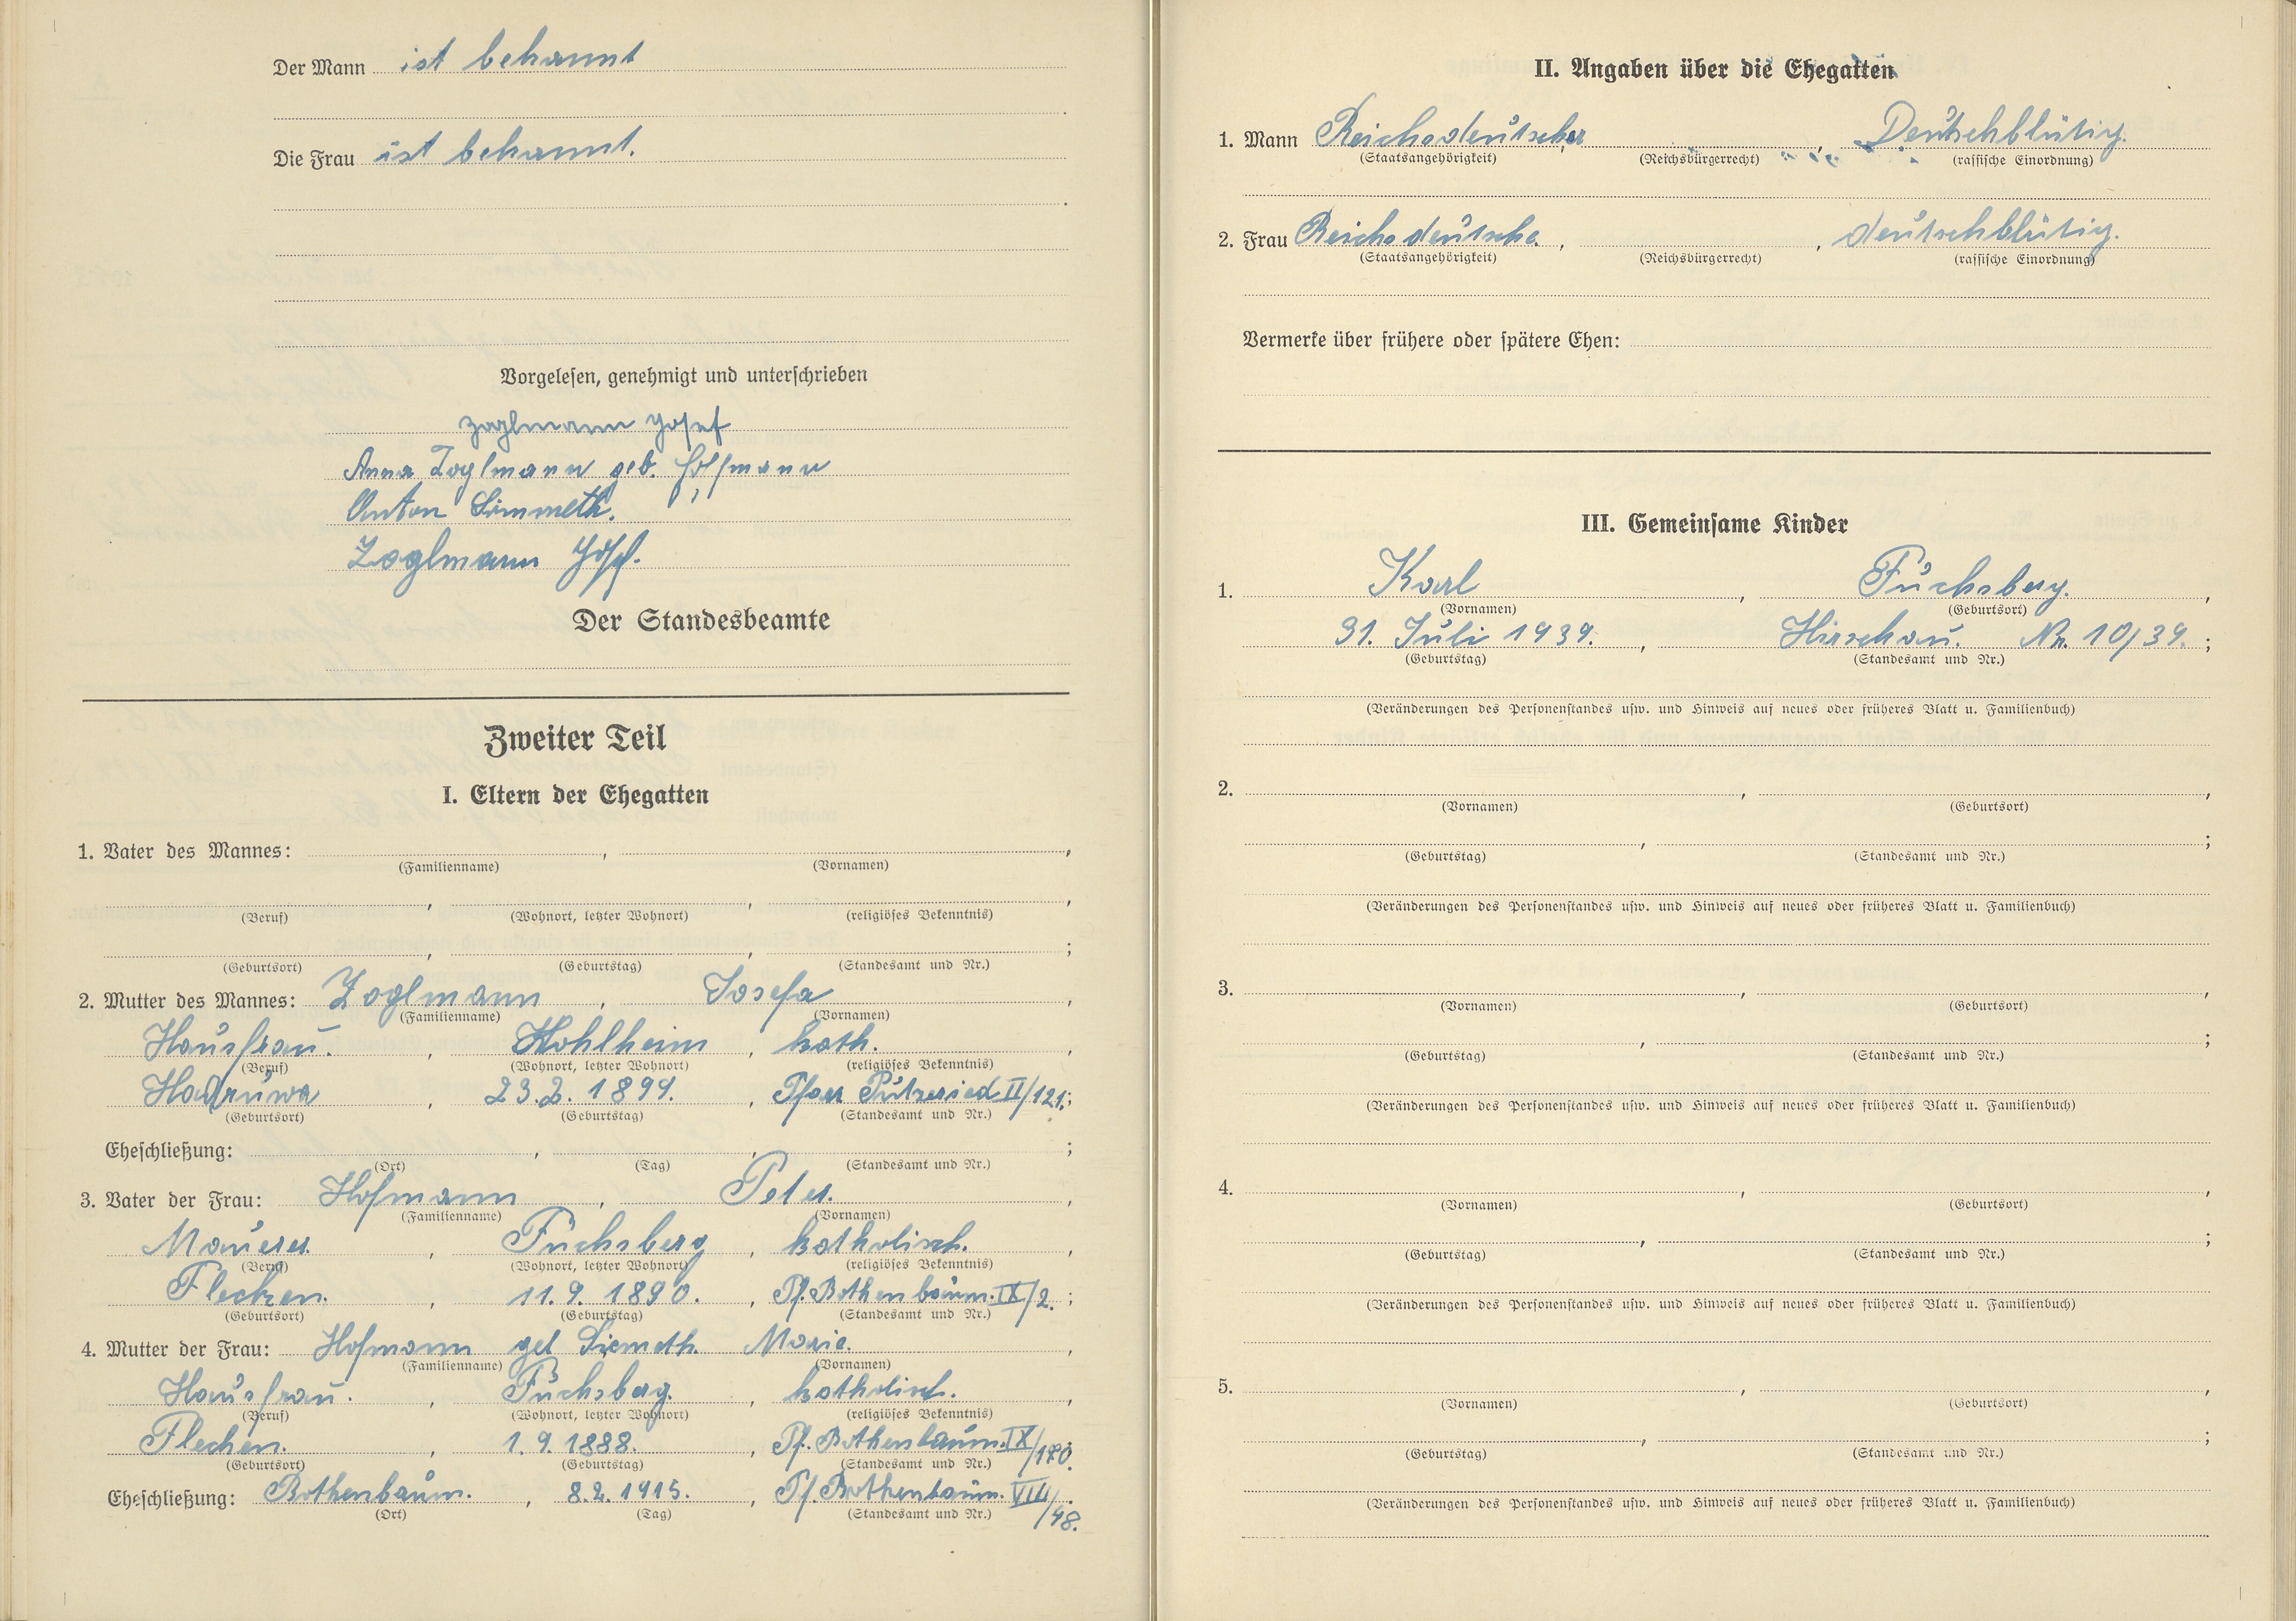 Der Mann ist bekannt
Die Frau ist bekannt.
Vorgelesen, genehmigt und unterschrieben
Zoglmann Josef
Anna Zoglmann geb. Hoffmann
Anton Simmeth.
Zoglmann Josef.
Der Standesbeamte
Zweiter Teil
I. Eltern der Ehegatten
1. Vater des Mannes: , ,
(Familienname) (Vornamen)
, , ,
(Beruf) (Wohnort, letzter Wohnort) (religiöses Bekenntnis)
, , ;
(Geburtsort) (Geburtstag) (Standesamt und Nr.)
2. Mutter des Mannes: Zoglmann , Josefa ,
(Familienname) (Vornamen)
Hausfrau. , Kohlheim , kath. ,
(Beruf) (Wohnort, letzter Wohnort) (religiöses Bekenntnis)
Hadruwa , 23.2.1899. , Pfar Putzeried II/121;
(Geburtsort) (Geburtstag) (Standesamt und Nr.)
Eheschließung: , , ;
(Ort) (Tag) (Standesamt und Nr.)
3. Vater der Frau: Hofmann , Peter. ,
(Familienname) (Vornamen)
Maurer. , Fuchsberg , katholisch. ,
(Beruf) (Wohnort, letzter Wohnort) (religiöses Bekenntnis)
Flecken. , 11.9.1890. , Pf. Rothenbaum. IX/2. ;
(Geburtsort) (Geburtstag) (Standesamt und Nr.)
4. Mutter der Frau: Hofmann geb Siemeth. Marie. ,
(Familienname) (Vornamen)
Hausfrau. , Fuchsberg. , katholisch. ,
(Beruf) (Wohnort, letzter Wohnort) (religiöses Bekenntnis)
Flecken. , 1.9.1888. , Pf. Rothenbaum. IX
(Geburtsort) (Geburtstag) (Standesamt und Nr.)
Eheschließung: Rothenbaum. , 8.2.1915. , Pf. Rothenbaum. VIII/48.
(Ort) (Tag) (Standesamt und Nr.)
II. Angaben über die Ehegatten
1. Mann Reichsdeutscher , Deutschblütig.
(Staatsangehörigkeit) (Reichsbürgerrecht) (rassische Einordnung)
2. Frau Reichsdeutsche. , , deutschblütig.
(Staatsangehörigkeit) (Reichsbürgerrecht) (rassische Einordnung)
Vermerke über frühere oder spätere Ehen:
III. Gemeinsame Kinder
1. Karl , Fuchsberg. ,
(Vornamen) (Geburtsort)
31. Juli 1939. , Hirschau. Nr. 10/39. ;
(Geburtstag) (Standesamt und Nr.)
(Veränderungen des Personenstandes usw. und Hinweis auf neues oder früheres Blatt u. Familienbuch)
2. , ,
(Vornamen) (Geburtsort)
, ;
(Geburtstag) (Standesamt und Nr.)
(Veränderungen des Personenstandes usw. und Hinweis auf neues oder früheres Blatt u. Familienbuch)
3. , ,
(Vornamen) (Geburtsort)
, ;
(Geburtstag) (Standesamt und Nr.)
(Veränderungen des Personenstandes usw. und Hinweis auf neues oder früheres Blatt u. Familienbuch)
4. , ,
(Vornamen) (Geburtsort)
, ;
(Geburtstag) (Standesamt und Nr.)
(Veränderungen des Personenstandes usw. und Hinweis auf neues oder früheres Blatt u. Familienbuch)
5. , ,
(Vornamen) (Geburtsort)
, ;
(Geburtstag) (Standesamt und Nr.)
(Veränderungen des Personenstandes usw. und Hinweis auf neues oder früheres Blatt u. Familienbuch)